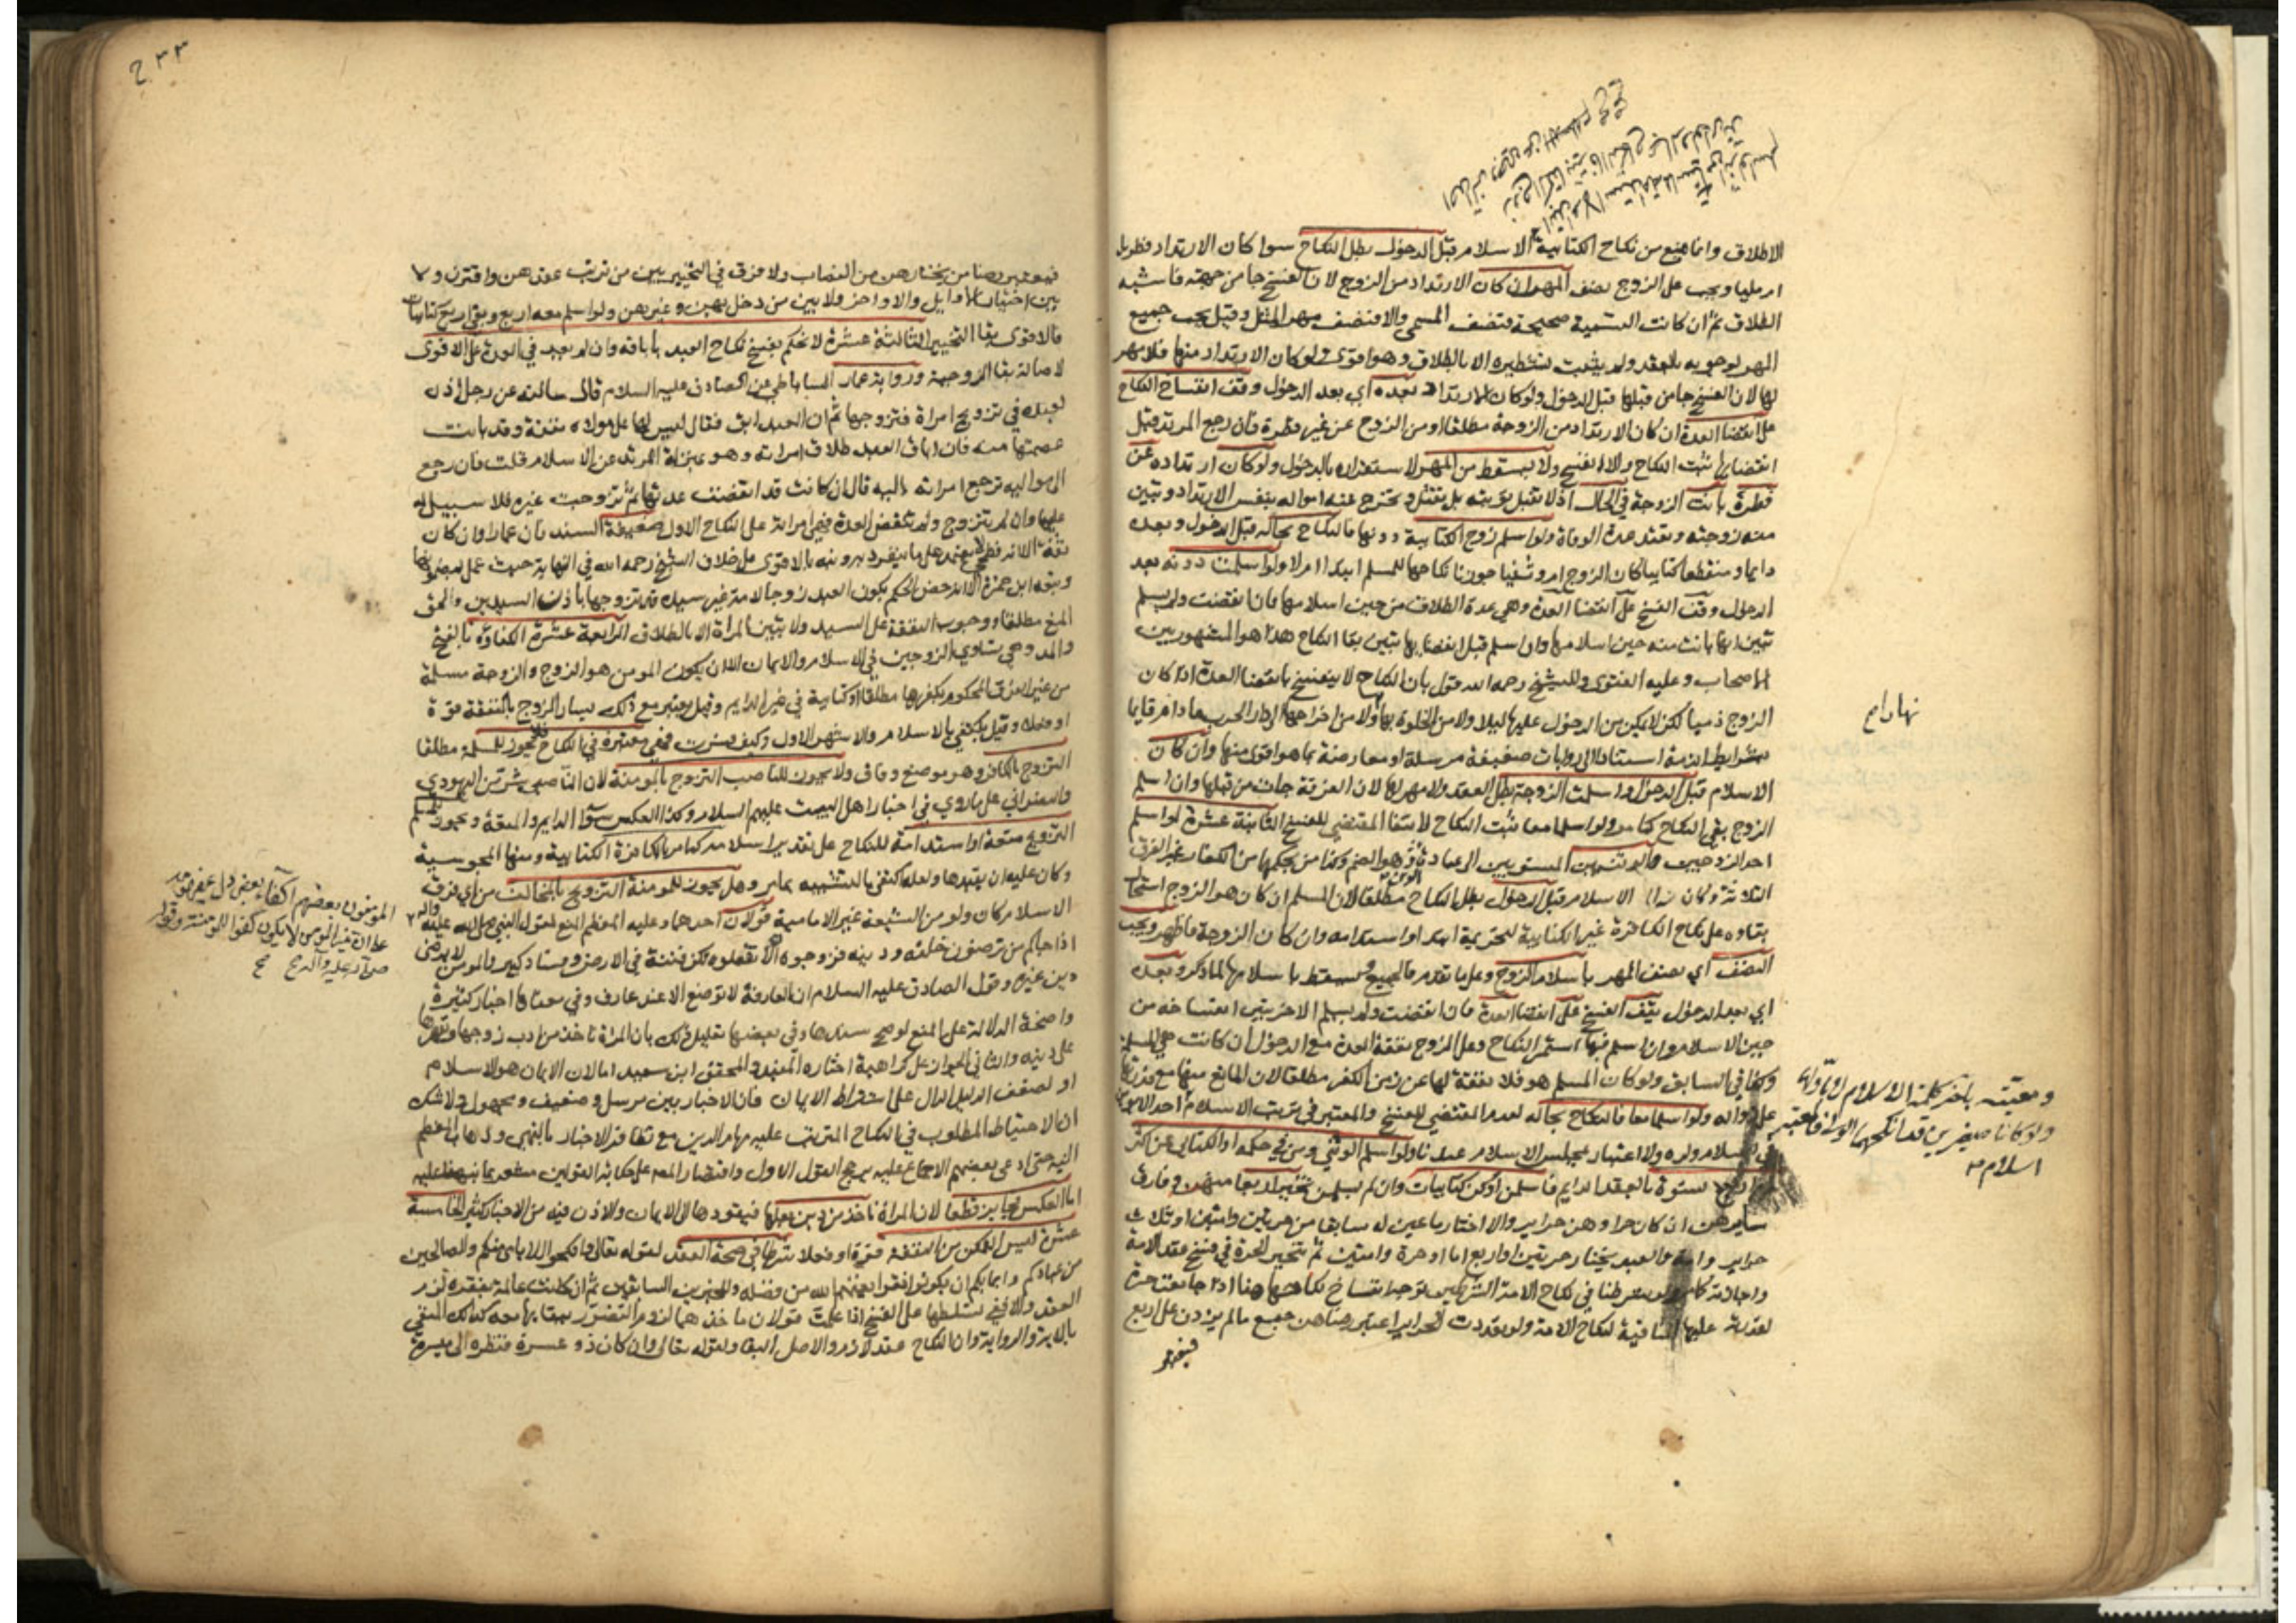 الاطلاق وانما يمنع من نكاح الكتابية الاسلام قبل الدخول بطل النكاح سوا كان الارتداد فطريا
ام مليا ويجب على الزوج نصف المهر ان كان الارتداد من الزوج لان الفسخ جا من جهته فاشبه
الطلاق ثم ان كانت التسمية صحيحة فنصف المسمى والا فنصف مهر المثل وقيل يجب جميع
المهر لوجوبه بالعقد ولم يثبت تشطيره الا بالطلاق وهو اقوى ولو كان الارتداد منها فلا مهر
لها لان الفسخ جا من قبلها قبل الدخول ولو كان الارتداد بعده اي بعد الدخول وقف انفساخ النكاح
على انقضا العدة ان كان الارتداد من الزوجة مطلقا او من الزوج عن غير فطرة فان رجع المرتد قبل
انقضايها ثبت النكاح والا انفسخ ولا يسقط من المهر لاستقراره بالدخول ولو كان ارتداده عن
فطرة بانت الزوجة في الحال اذ لا تقبل توبته بل يقتل وتخرج عنه امواله بنفس الارتداد وتبين
منه زوجته وتعتد عدة الوفاة ولو اسلم زوج الكتابية دونها فالنكاح بحاله قبل الدخول وبعده
دايما ومنقطعا كتابيا كان الزوج ام وثنيا جوزنا نكاحها للمسلم ابتدا ام لا ولو اسلمت دونه بعد
الدخول وقف الفسخ على انقضا العدة وهي عدة الطلاق من حين اسلامها فان انقضت ولم يسلم
تبين انها بانت منه حين اسلامها وان اسلم قبل انقضايها تبين بقا النكاح هذا هو المشهور بين
الاصحاب وعليه الفتوى وللشيخ رحمه الله قول بان النكاح لا ينفسخ بانقضا العدة اذا كان
الزوج ذميا لكن لا يمكن من الدخول عليها ليلا ولا من الخلوة بها ولا من اخراجها الى دار الحرب ما دام قايما
بشرايط الذمة استنادا الى روايات ضعيفة مرسلة او معارضة بما هو اقوى منها وان كان
الاسلام قبل الدخول واسلمت الزوجة بطل العقد ولا مهر لها لان الفرقة جات من قبلها وان اسلم
الزوج بقي النكاح كما مر ولو اسلما معا ثبت النكاح لانتفا المقتضي للفسخ الثانية عشرة لو اسلم
احد الزوجين الوثنيين المنسوبين الى عبادة الوثن وهو الصنم وكذا من بحكمهما من الكفار غير الفرق
الثلاثة وكان الاسلام قبل الدخول بطل النكاح مطلقا لان المسلم ان كان هو الزوج استحال
بقاوه على نكاح الكافرة غير الكتابية لتحريمه ابتدا واستدامة وان كان الزوجة فاظهر ويجب
النصف اي نصف المهر باسلام الزوج وعلى ما تقدم فالجميع ويسقط باسلامها لما ذكر وبعده
اي بعد الدخول يقف الفسخ على انقضا العدة فان انقضت ولم يسلم الاخر تبين انفساخه من
حين الاسلام وان اسلم فيها استمر النكاح وعلى الزوج نفقة العدة مع الدخول ان كانت هي المسلمة
وكذا في السابق ولو كان المسلم هو فلا نفقة لها عن زمن الكفر مطلقا لان المانع منها مع قدرتها
على زواله ولو اسلما معا فالنكاح بحاله لعدم المقتضي للفسخ والمعتبر في ترتب الاسلام
ولا اعتبار بمجلس الاسلام عندنا ولو اسلم الوثني ومن في حكمه او الكتابي عن اكثر
بالعقد الدايم فاسلمن او كن كتابيات وان لم يسلمن تخير اربعا منهن وفارق
سايرهن ان كان حرا وهن حراير والا اختار ما عين له سابقا من حرتين وامتين او ثلث
حراير وامة والعبد يختار حرتين او اربع اما او حرة وامتين ثم تتخير الحرة في فسخ عقد الامة
واجازته كما مر ولو شرطنا في نكاح الامة الشرطين توجه انفساخ نكاحها هنا اذا جامعت حرة
لقدرته عليها المنافية لنكاح الامة ولو تعددت الحراير اعتبر رضاهن جميعا ما لم يزدن على اربع
نهارا صح
فيعتبر رضا من يختارهن من النصاب ولا فرق في التخيير بين من ترتب عقدهن واقترن ولا
بين اختيار الاوايل والاواخر ولا بين من دخل بهن وغيرهن ولو اسلم معه اربع وبقي اربع كتابيات
فالاقوى بقا التخيير الثالثة عشرة لا نحكم بفسخ نكاح العبد باباقه وان لم يعد في العدة على الاقوى
لاصالة بقا الزوجية ورواية عمار الساباطي عن الصادق عليه السلام قال سالته عن رجل اذن
لعبده في تزويج امراة فتزوجها ثم ان العبد ابق فقال ليس لها على مولاه نفقة وقد بانت
عصمتها منه فان اباق العبد طلاق امراته وهو بمنزلة المرتد عن الاسلام قلت فان رجع
الى مواليه ترجع امراته اليه قال ان كانت قد انقضت عدتها ثم تزوجت غيره فلا سبيل له
عليها وان لم تتزوج ولم تنقض العدة فهي امراته على النكاح الاول ضعيفة السند فان عمارا وان كان
ثقة الا انه فطحي لا يعتمد على ما ينفرد به ونبه بالاقوى على خلاف الشيخ رحمه الله في النهاية حيث عمل بمضمونها
وتبعه ابن حمزة الا انه خص الحكم بكون العبد زوجا لامة غير سيده قد تزوجها باذن السيدين والحق
المنع مطلقا ووجوب النفقة على السيد ولا تبين المراة الا بالطلاق الرابعة عشرة الكفاءة بالفتح
والمد وهي تساوي الزوجين في الاسلام والايمان الا ان يكون المومن هو الزوج والزوجة مسلمة
من غير الفرق المحكوم بكفرها مطلقا او كتابية في غير الدايم وقيل يعتبر مع ذلك يسار الزوج بالنفقة قوة
او فعلا وقيل يكتفى بالاسلام والاشهر الاول وكيف فسرت فهي معتبرة في النكاح فلا يجوز للمسلمة مطلقا
التزوج بالكافر وهو موضع وفاق ولا يجوز للناصب التزوج بالمومنة لان الناصبي شر من اليهودي
والنصراني على ما روي في اخبار اهل البيت عليهم السلام وكذا العكس سوا الدايم والمتعة ويجوز للمسلم
التزويج متعة او استدامة للنكاح على تقدير اسلامه كما مر بالكافرة الكتابية ومنها المجوسية
وكان عليه ان يقيدها ولعله اكتفى بالتشبيه بما مر وهل يجوز للمومنة التزويج بالمخالف من اي فرق
الاسلام كان ولو من الشيعة غير الامامية قولان احدهما وعليه المعظم المنع لقول النبي صلى الله عليه واله
اذا جاكم من ترضون خلقه ودينه فزوجوه الا تفعلوه تكن فتنة في الارض وفساد كبير والمومن لا يرضى
دين غيره وقول الصادق عليه السلام ان العارفة لا توضع الا عند عارف وفي معناها اخبار كثيرة
واضحة الدلالة على المنع لو صح سندها وفي بعضها تعليل ذلك بان المراة تاخذ من ادب زوجها ويقهرها
على دينه والثاني الجواز على كراهية اختاره المفيد والمحقق ابن سعيد اما لان الايمان هو الاسلام
او لضعف الدليل الدال على اشتراط الايمان فان الاخبار بين مرسل وضعيف ومجهول ولا شك
ان الاحتياط المطلوب في النكاح المترتب عليه مهام الدين مع تظافر الاخبار بالنهي وذهاب المعظم
اليه حتى ادعى بعضهم الاجماع عليه يرجح القول الاول واقتصار المصنف على حكاية القولين مشعر بما نبهنا عليه
اما العكس فجايز قطعا لان المراة تاخذ من دين بعلها فيقودها الى الايمان والاذن فيه من الاخبار كثير الخامسة
عشرة ليس التمكن من النفقة قوة او فعلا شرطا في صحة العقد لقوله تعالى وانكحوا الايامى منكم والصالحين
من عبادكم وامايكم ان يكونوا فقرا يغنهم الله من فضله وللخبرين السابقين ثم ان كانت عالمة بفقره لزم
العقد والا ففي تسلطها على الفسخ اذا علمت قولان ماخذهما لزوم التضرر ببقايها معه كذلك المنفي
بالاية والرواية وان النكاح عقد لازم والاصل البقا ولقوله تعالى وان كان ذو عسرة فنظرة الى ميسرة
المومنون بعضهم اكفاء بعض دل بمفهومه
على ان غير المومن لا يكون كفوا للمومنة وقوله